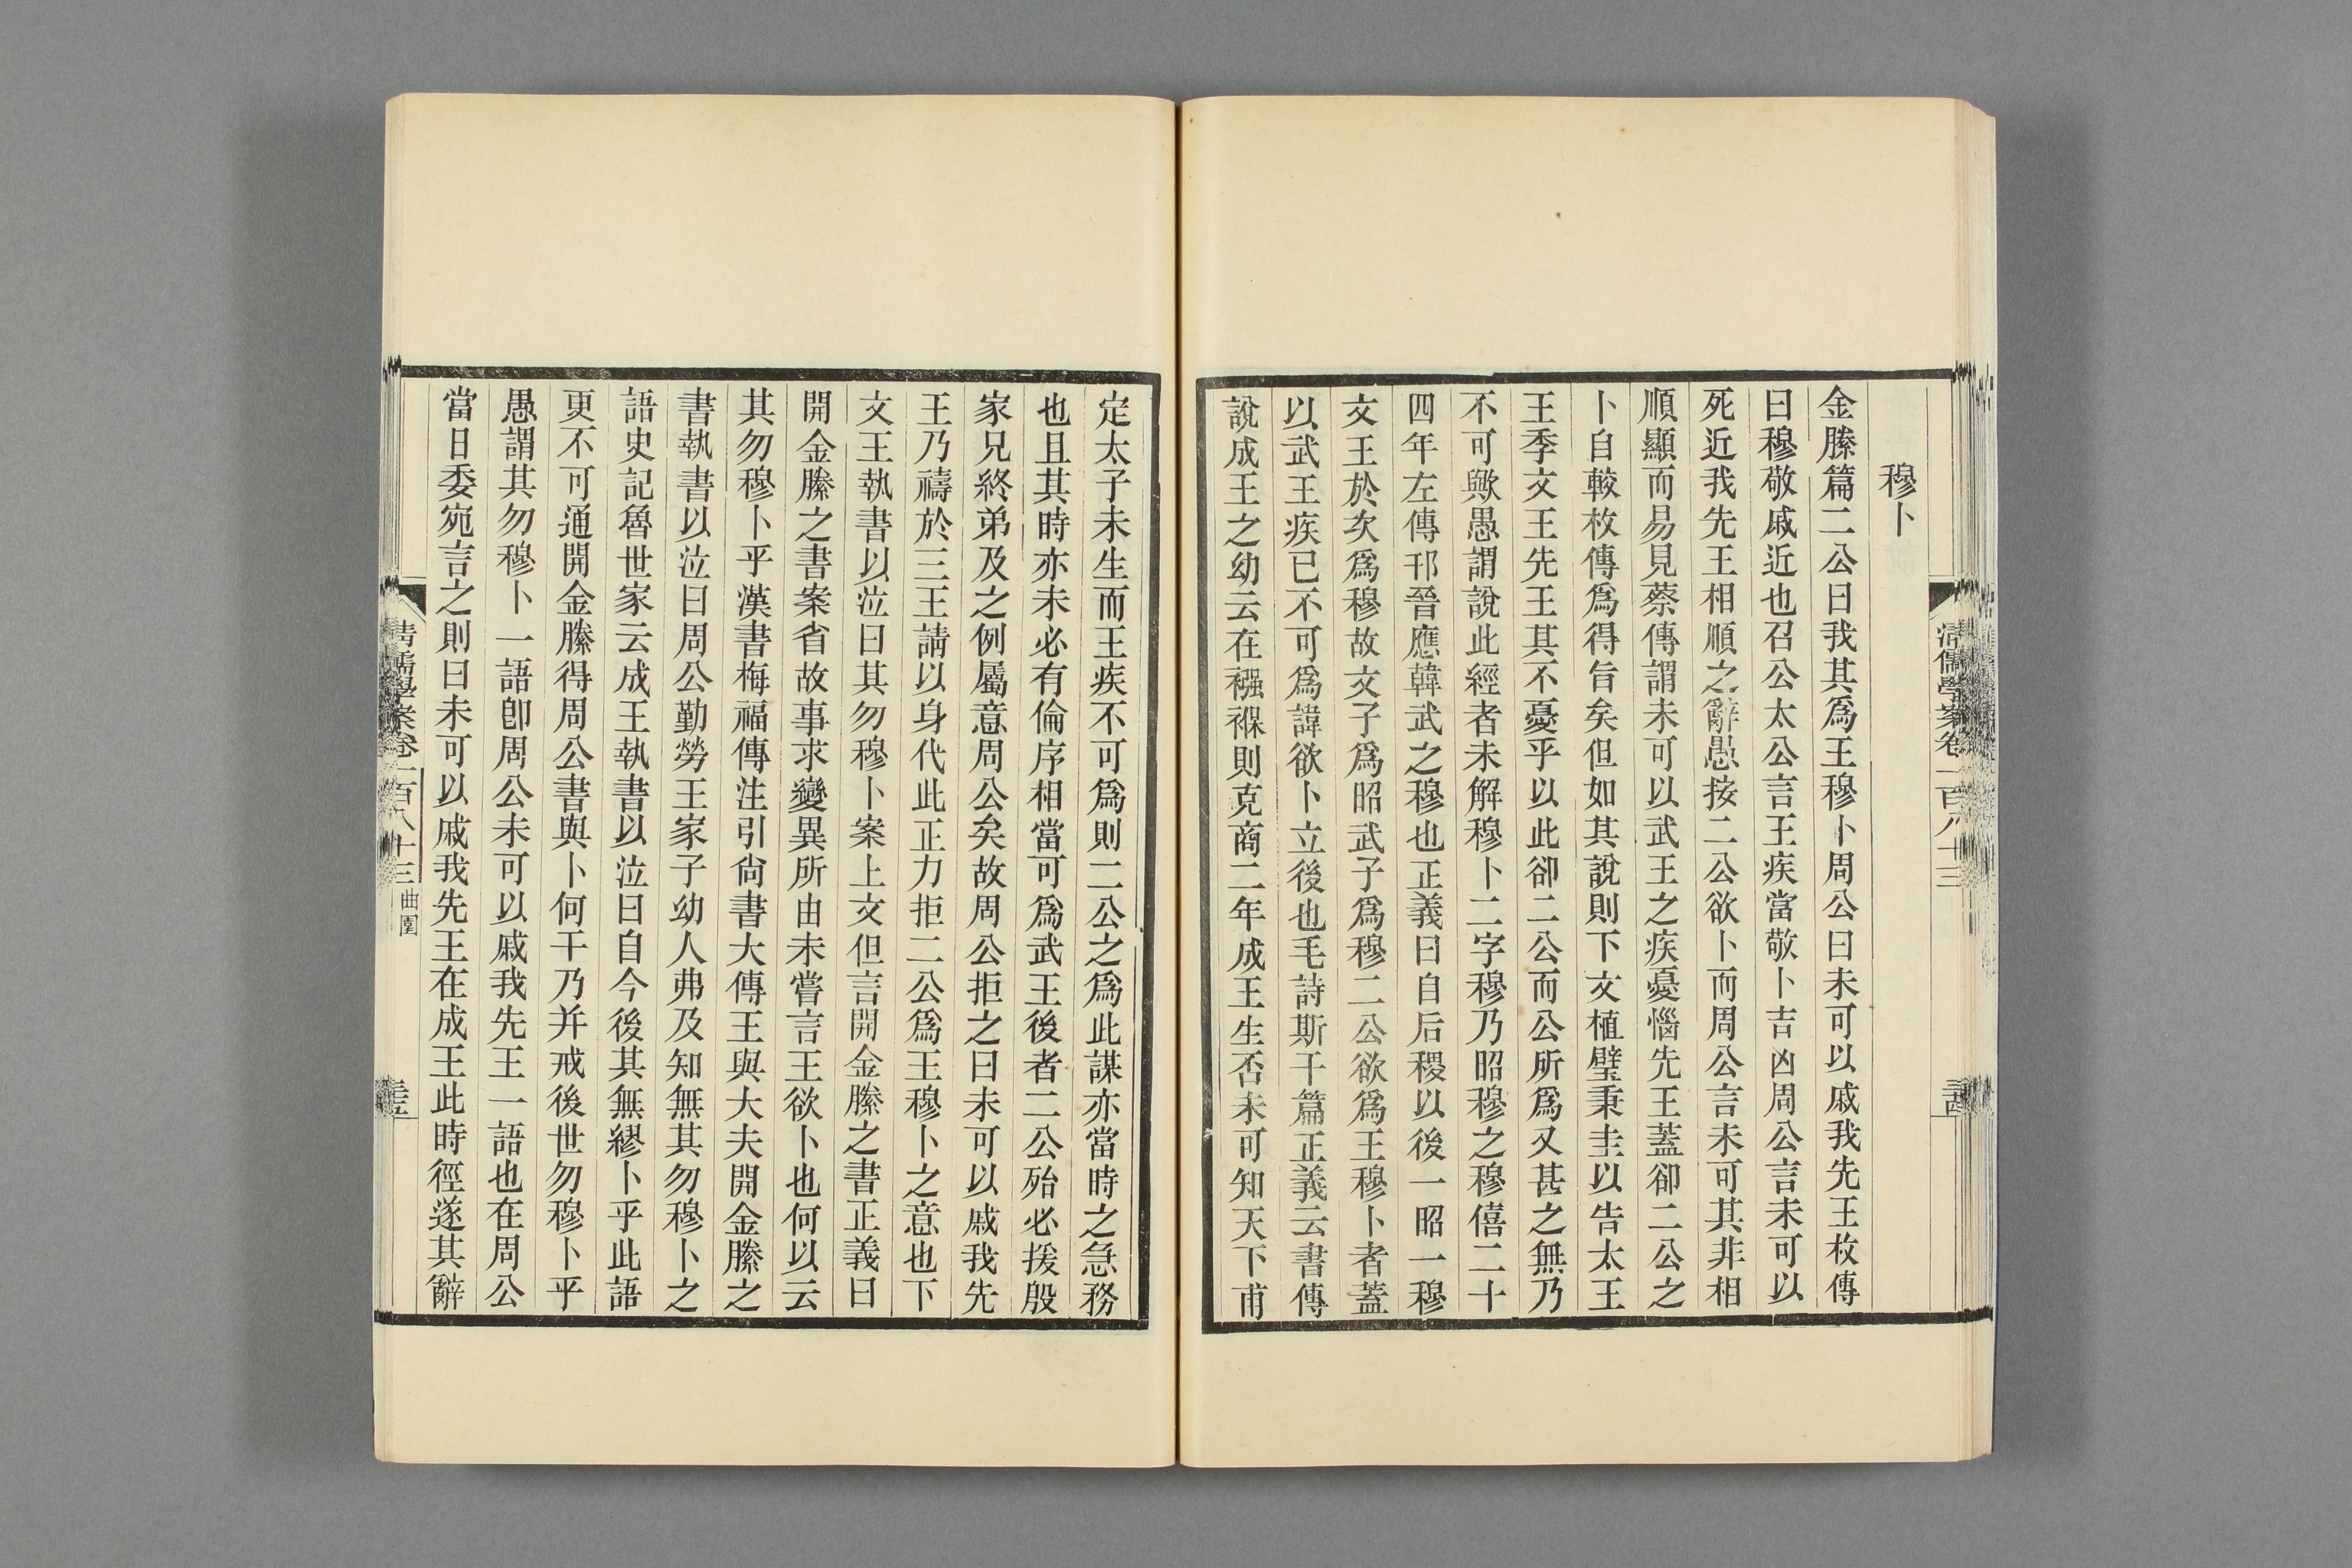 穆卜
金縢篇二公曰我其爲王穆卜周公曰未可以戚我先王枚傳
曰穆敬戚近也召公太公言王疾當敬卜吉凶周公言未可以
死近我先王相順之辭愚按二公欲卜而周公言未可其非相
順顯而易見蔡傳謂未可以武王之疾憂惱先王蓋卻二公之
卜自較枚傳爲得旨矣但如其說則下文植璧秉圭以告太王
王季文王先王其不憂乎以此卻二公而公所爲又甚之無乃
不可歟愚謂說此經者未解穆卜二字穆乃昭穆之穆僖二十
四年左傳邘晉應韓武之穆也正義曰自后稷以後一昭一穆
文王於次爲穆故文子爲昭武子爲穆二公欲爲王穆卜者蓋
以武王疾已不可爲諱欲卜立後也毛詩斯干篇正義云書傳
說成王之幼云在襁褓則克商二年成王生否未可知天下甫
定太子未生而王疾不可爲則二公之爲此謀亦當時之急務
也且其時亦未必有倫序相當可爲武王後者二公殆必援殷
家兄終弟及之例屬意周公矣故周公拒之曰未可以戚我先
王乃禱於三王請以身代此正力拒二公爲王穆卜之意也下
文王執書以泣曰其勿穆卜案上文但言開金縢之書正義曰
開金縢之書案省故事求變異所由未嘗言王欲卜也何以云
其勿穆卜乎漢書梅福傳注引尙書大傳王與大夫開金縢之
書執書以泣曰周公勤勞王家子幼人弗及知無其勿穆卜之
語史記魯世家云成王執書以泣曰自今後其無繆卜乎此語
更不可通開金縢得周公書與卜何干乃并戒後世勿穆卜乎
愚謂其勿穆卜一語卽周公未可以戚我先王一語也在周公
當日委宛言之則曰未可以戚我先王在成王此時徑遂其辭
清儒學案卷一百八十三
清儒學案卷一百八十三 曲園